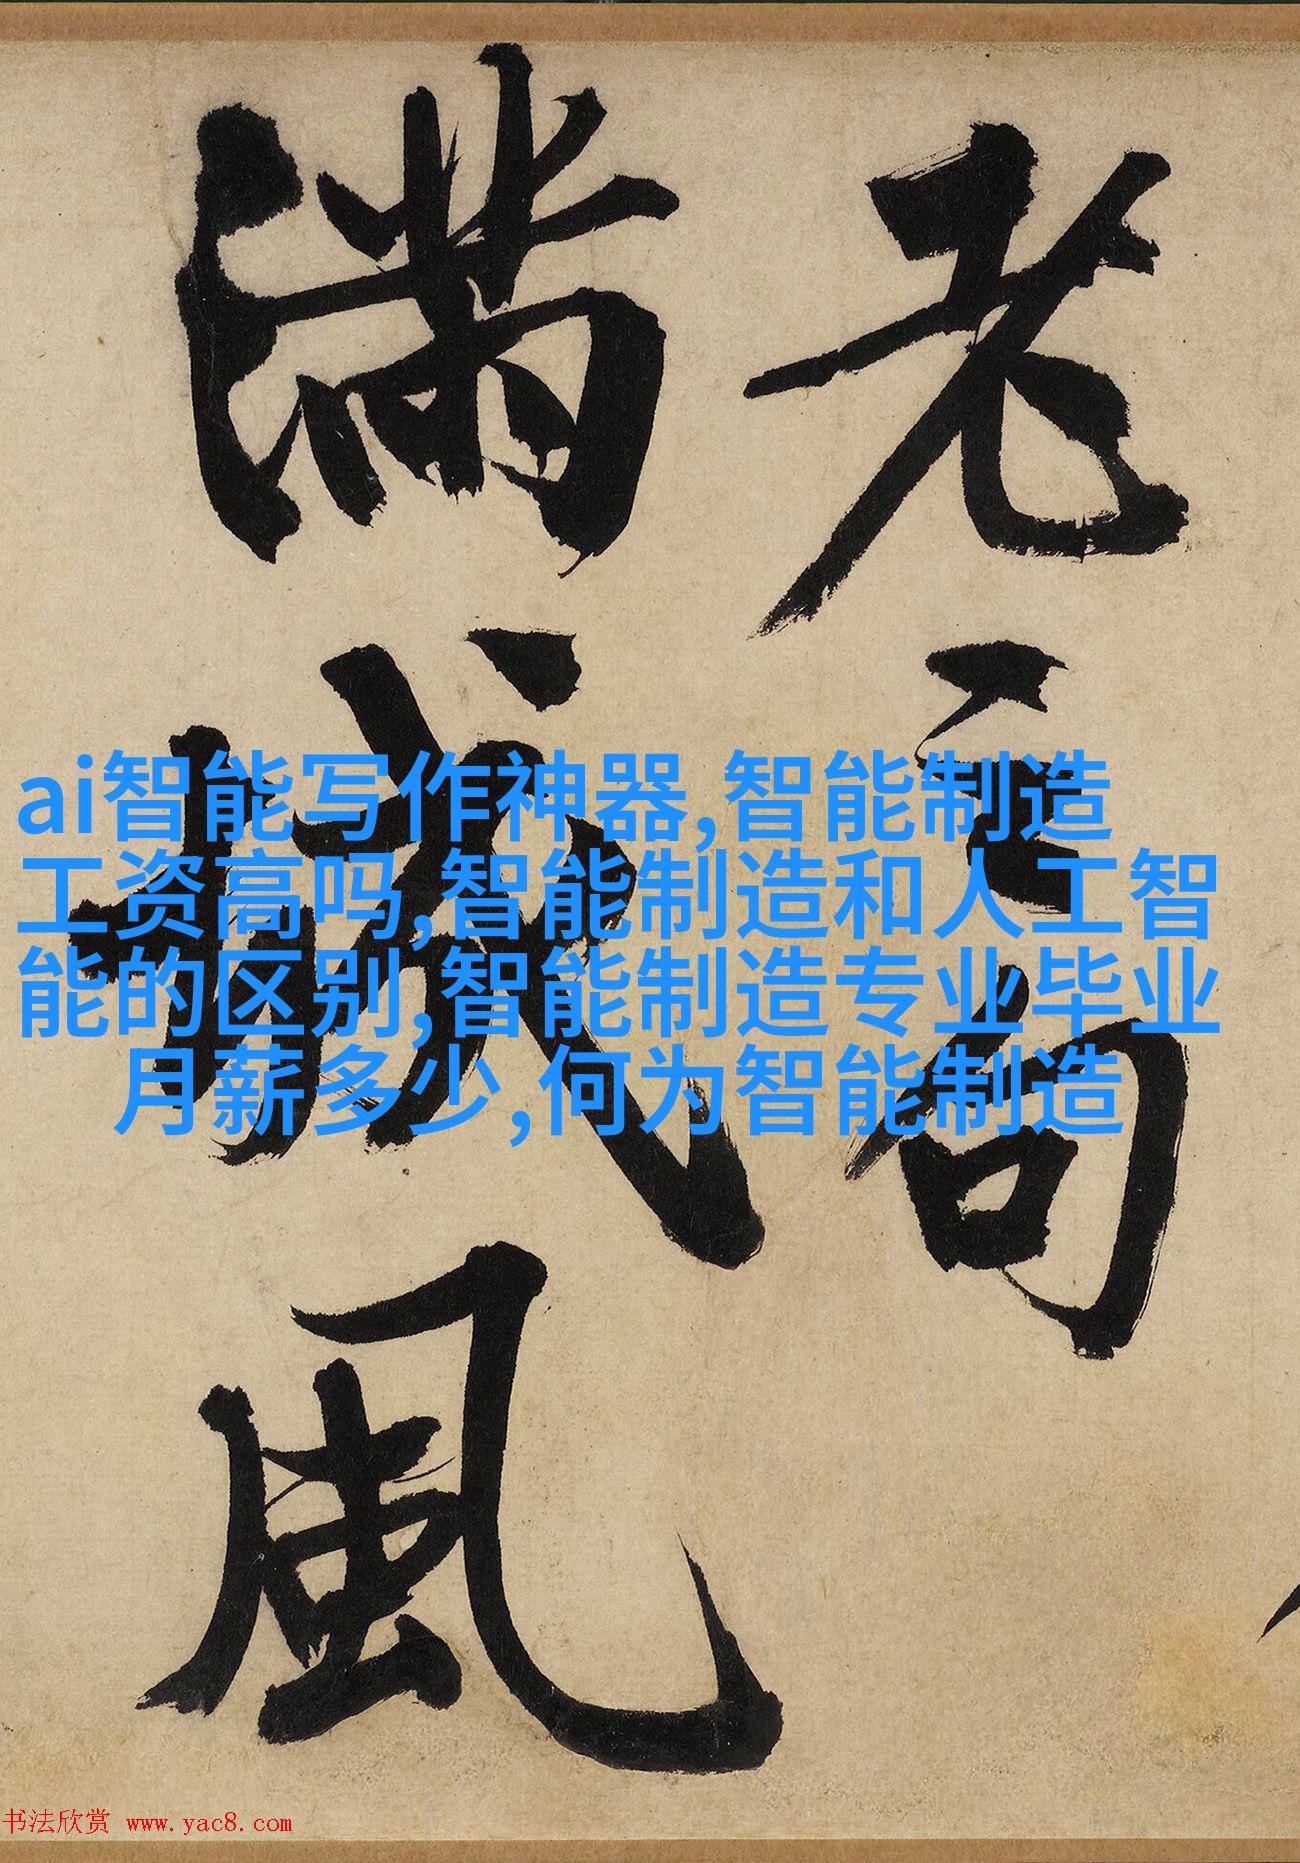 老句
满城風
ai智能写作神器,智能制造
工资高吗,智能制造和人工智
能的区别,智能制造专业毕业
月薪多少,何为智能制造
书法欣赏 www.yac8.com